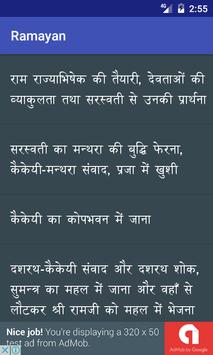 4G 2:55
Ramayan
राम राज्याभिषेक की तैयारी, देवताओं की
व्याकुलता तथा सरस्वती से उनकी प्रार्थना
सरस्वती का मन्थरा की बुद्धि फेरना,
कैकेयी-मन्थरा संवाद, प्रजा में खुशी
कैकेयी का कोपभवन में जाना
दशरथ-कैकेयी संवाद और दशरथ शोक,
सुमन्त्र का महल में जाना और वहाँ से
लौटकर श्री रामजी को महल में भेजना
Nice job! You're displaying a 320 x 50
test ad from AdMob.
AdMob by Google